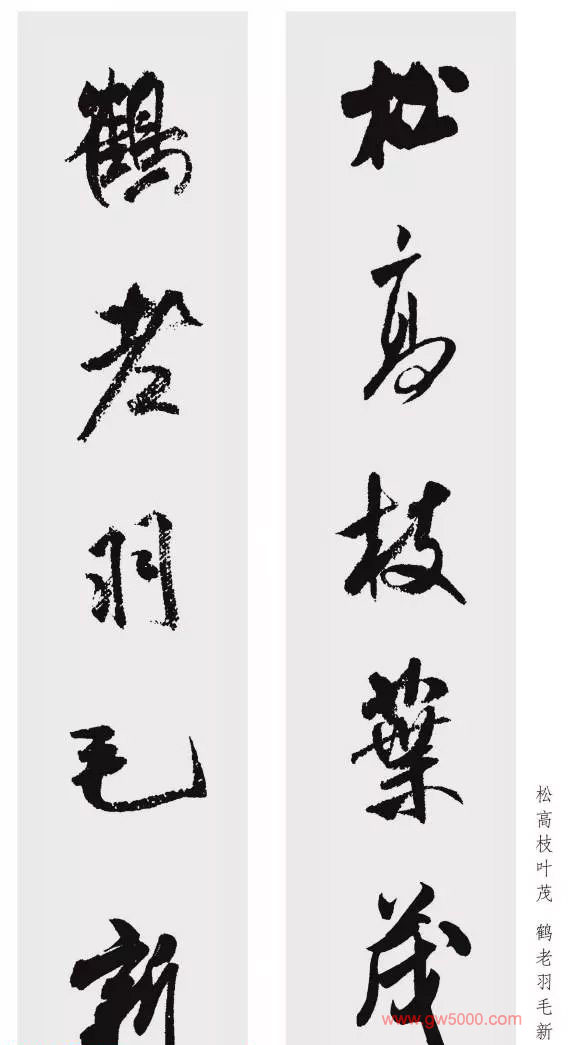 松高枝葉茂
鶴老羽毛新
松高枝叶茂 鹤老羽毛新
www.gw5000.com